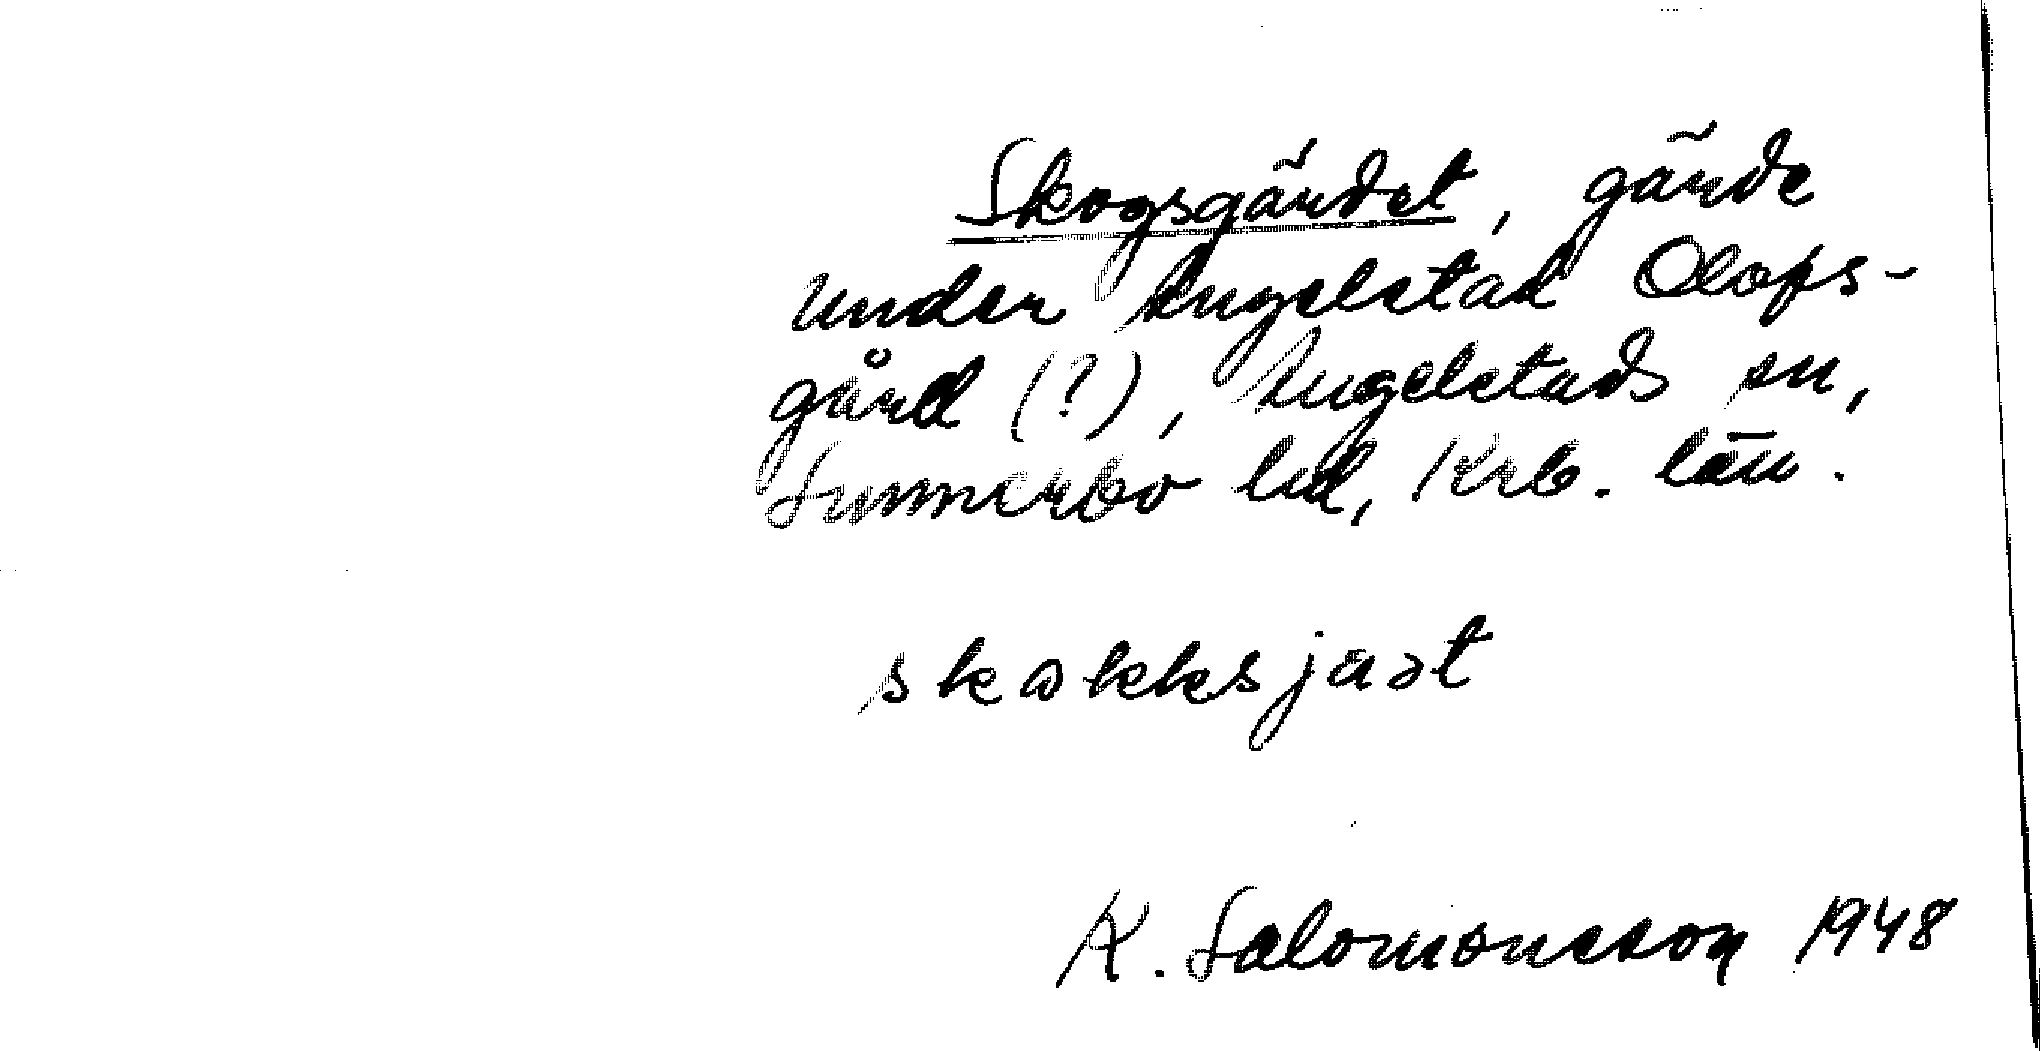 Skogsgärdet, gärde
under Angelstad Olofs-
gård (?), Angelstads sn,
Sunnerbo hd, Krb. län.
skɷkksjaət
K. Salomonsson 1948